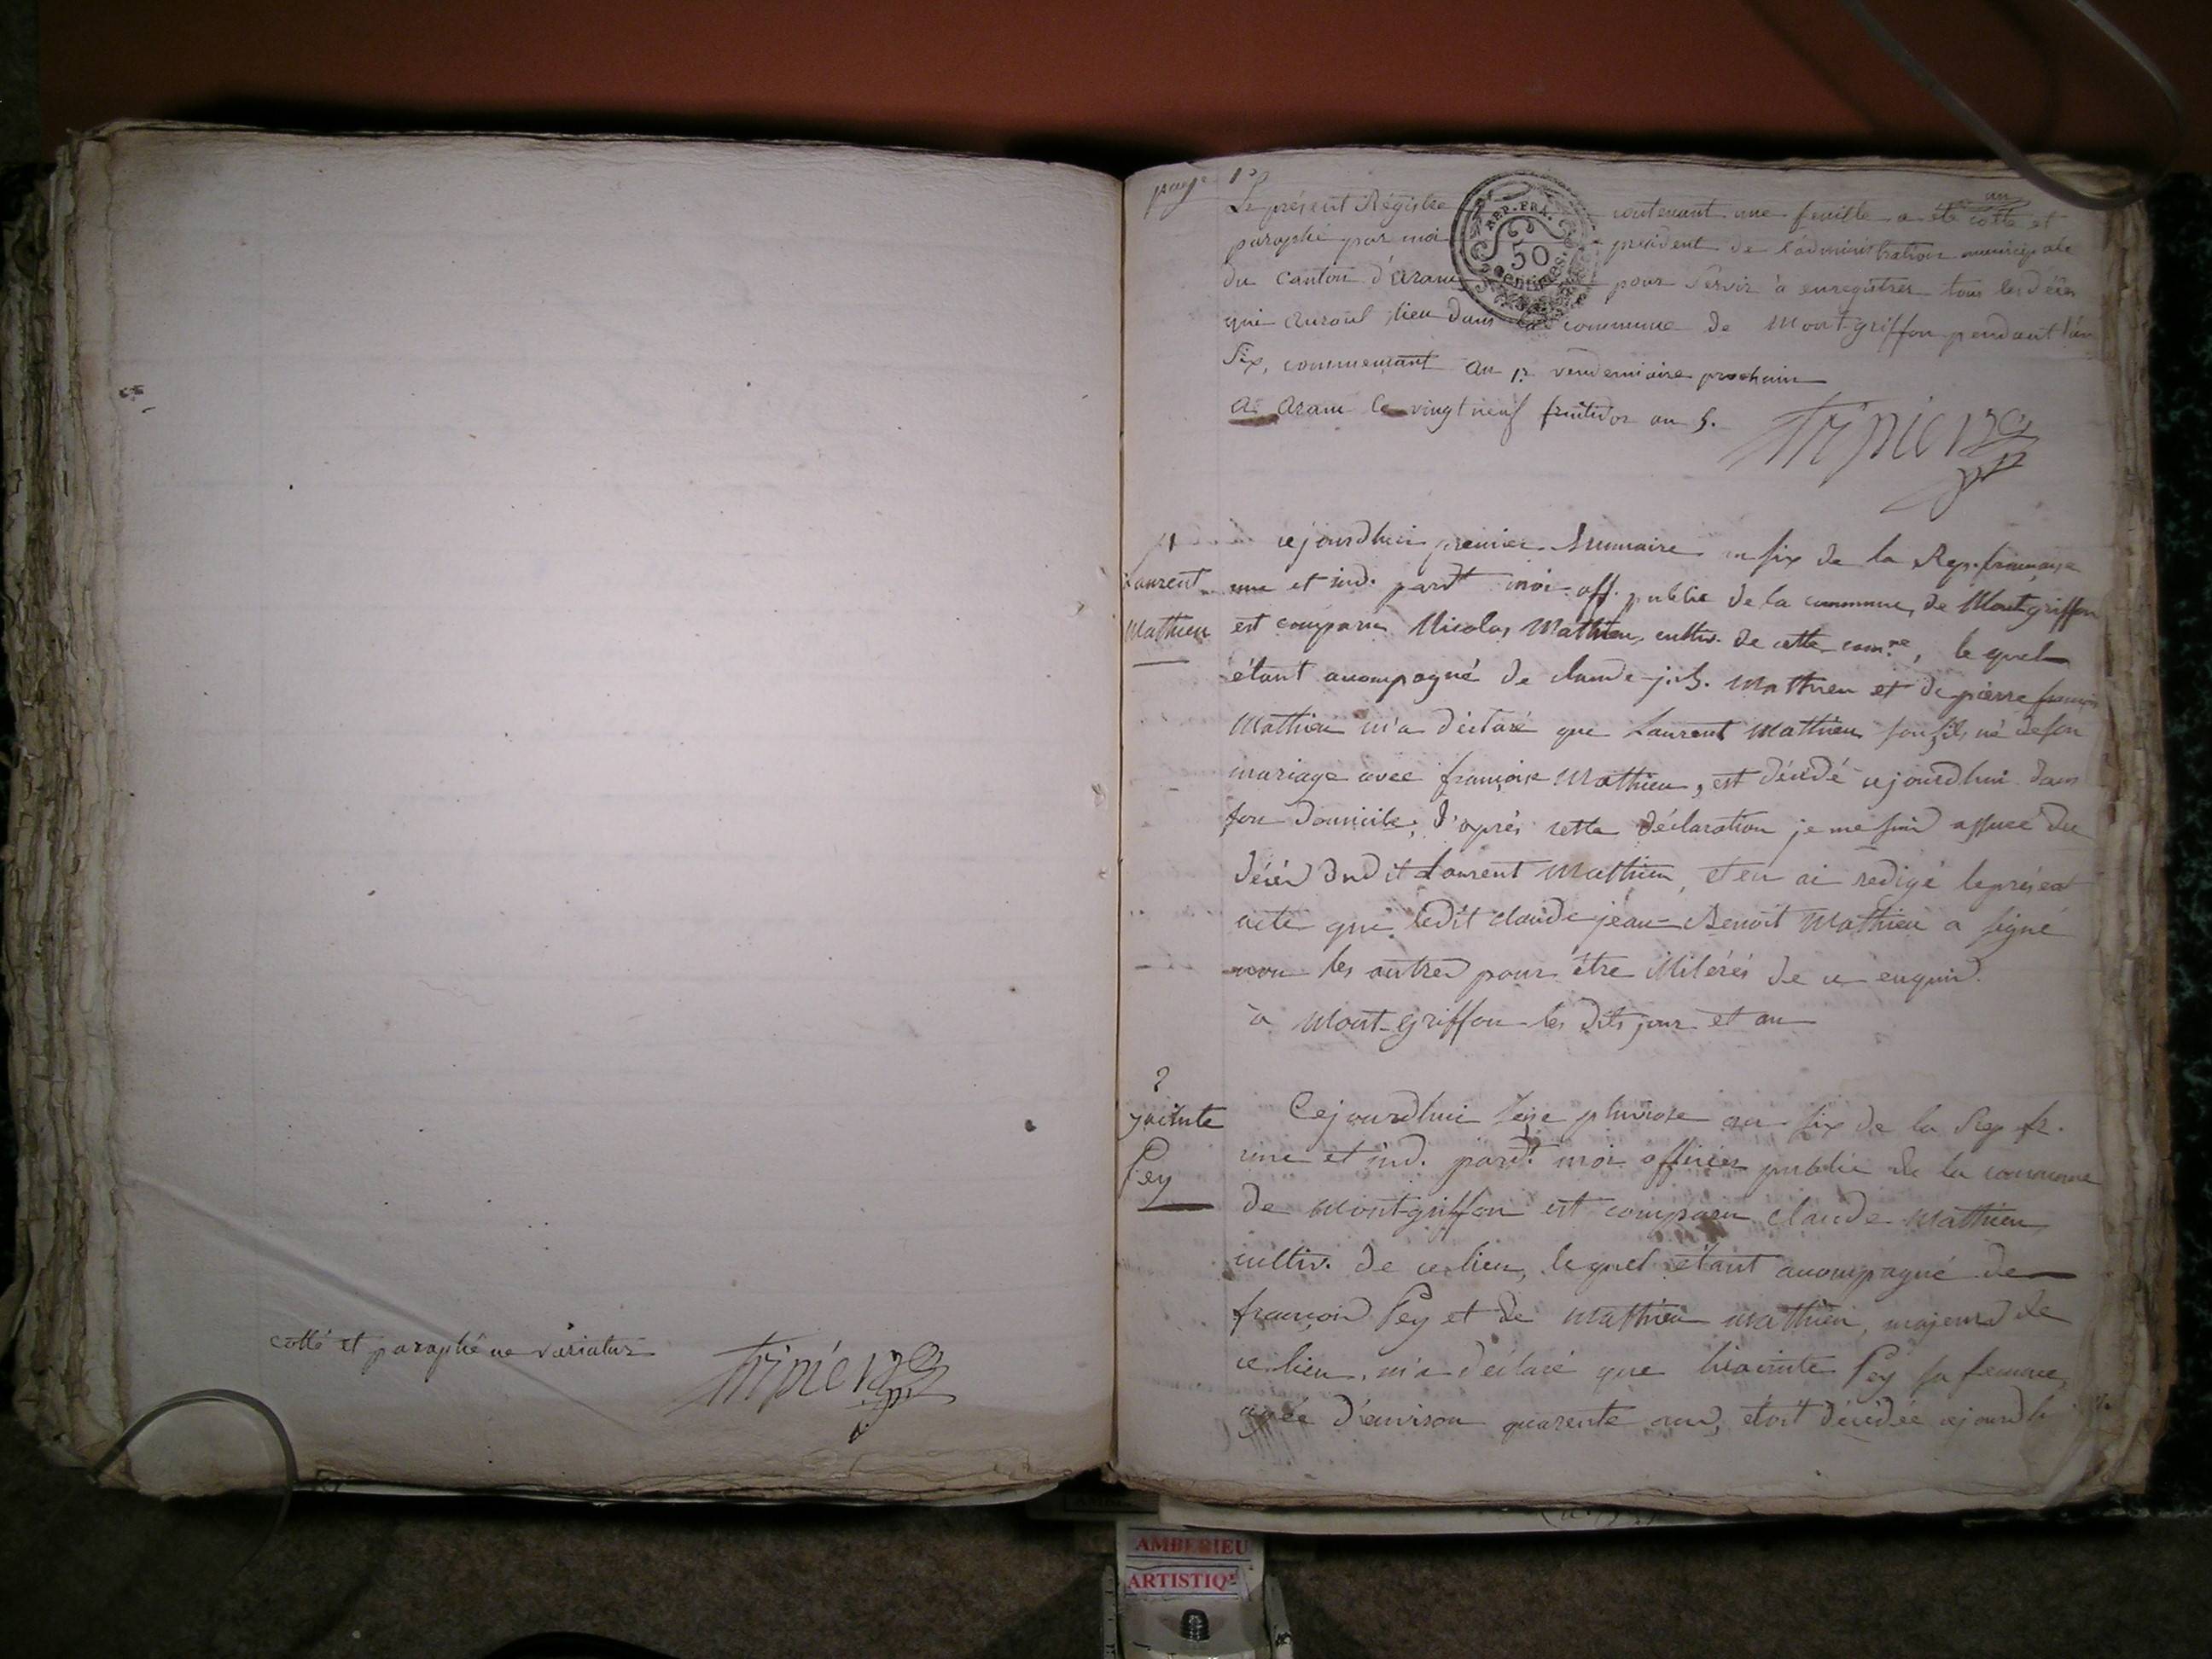 cotté et paraphé ne variatur
Tripier
page 1re
Le présent Régistre contenant une feuille a été cotté et
paraphé par moi président de l'administration municipale
du canton d'aranc pour servir à enregistrer tous les décès
qui auront lieu dans la commune de Montgriffon pendant l'an
Six, commençant au 1er vendemiaire prochain
a aranc le vingt neuf fructidor an 5.
Tripier
REP. FRA.
50
CENTIMES.
1
Laurent
Mathieu
cejourdhui premier brumaire an six de la Rep. françoise
une et ind. pardt moi off. public de la commune de Montgriffon
est comparu Nicolas Mathieu, cultiv. de cette comne, le quel
étant acompagné de claude j. B. Mathieu et de pierre françois
Mathieu m'a déclaré que Laurent Mathieu son fils né de son
mariage avec françoise Mathieu, est décédé cejourdhui dans
son domicile; d'après cette déclaration je me suis assuré du
décès dudit Laurent Mathieu, et en ai redigé le présent
acte que ledit claude jean Benoit Mathieu a signé
non les autres pour être illiterés de ce enquis.
à Mont-griffon les dits jour et an
2
jacinte
Pey
Cejourdhui seize pluviose an six de la Rep fr.
une et ind. pardt moi officier public de la commune
de Montgriffon est comparu claude Mathieu
cultiv. de ce lieu, lequel étant acompagné de
françois Pey et de Mathieu Mathieu, majeurs de
ce lieu, m'a déclaré que hiacinte Pey sa femme,
agée d'environ quarente ans, étoit décédée cejourdh
AMBERIEU
ARTISTIQ